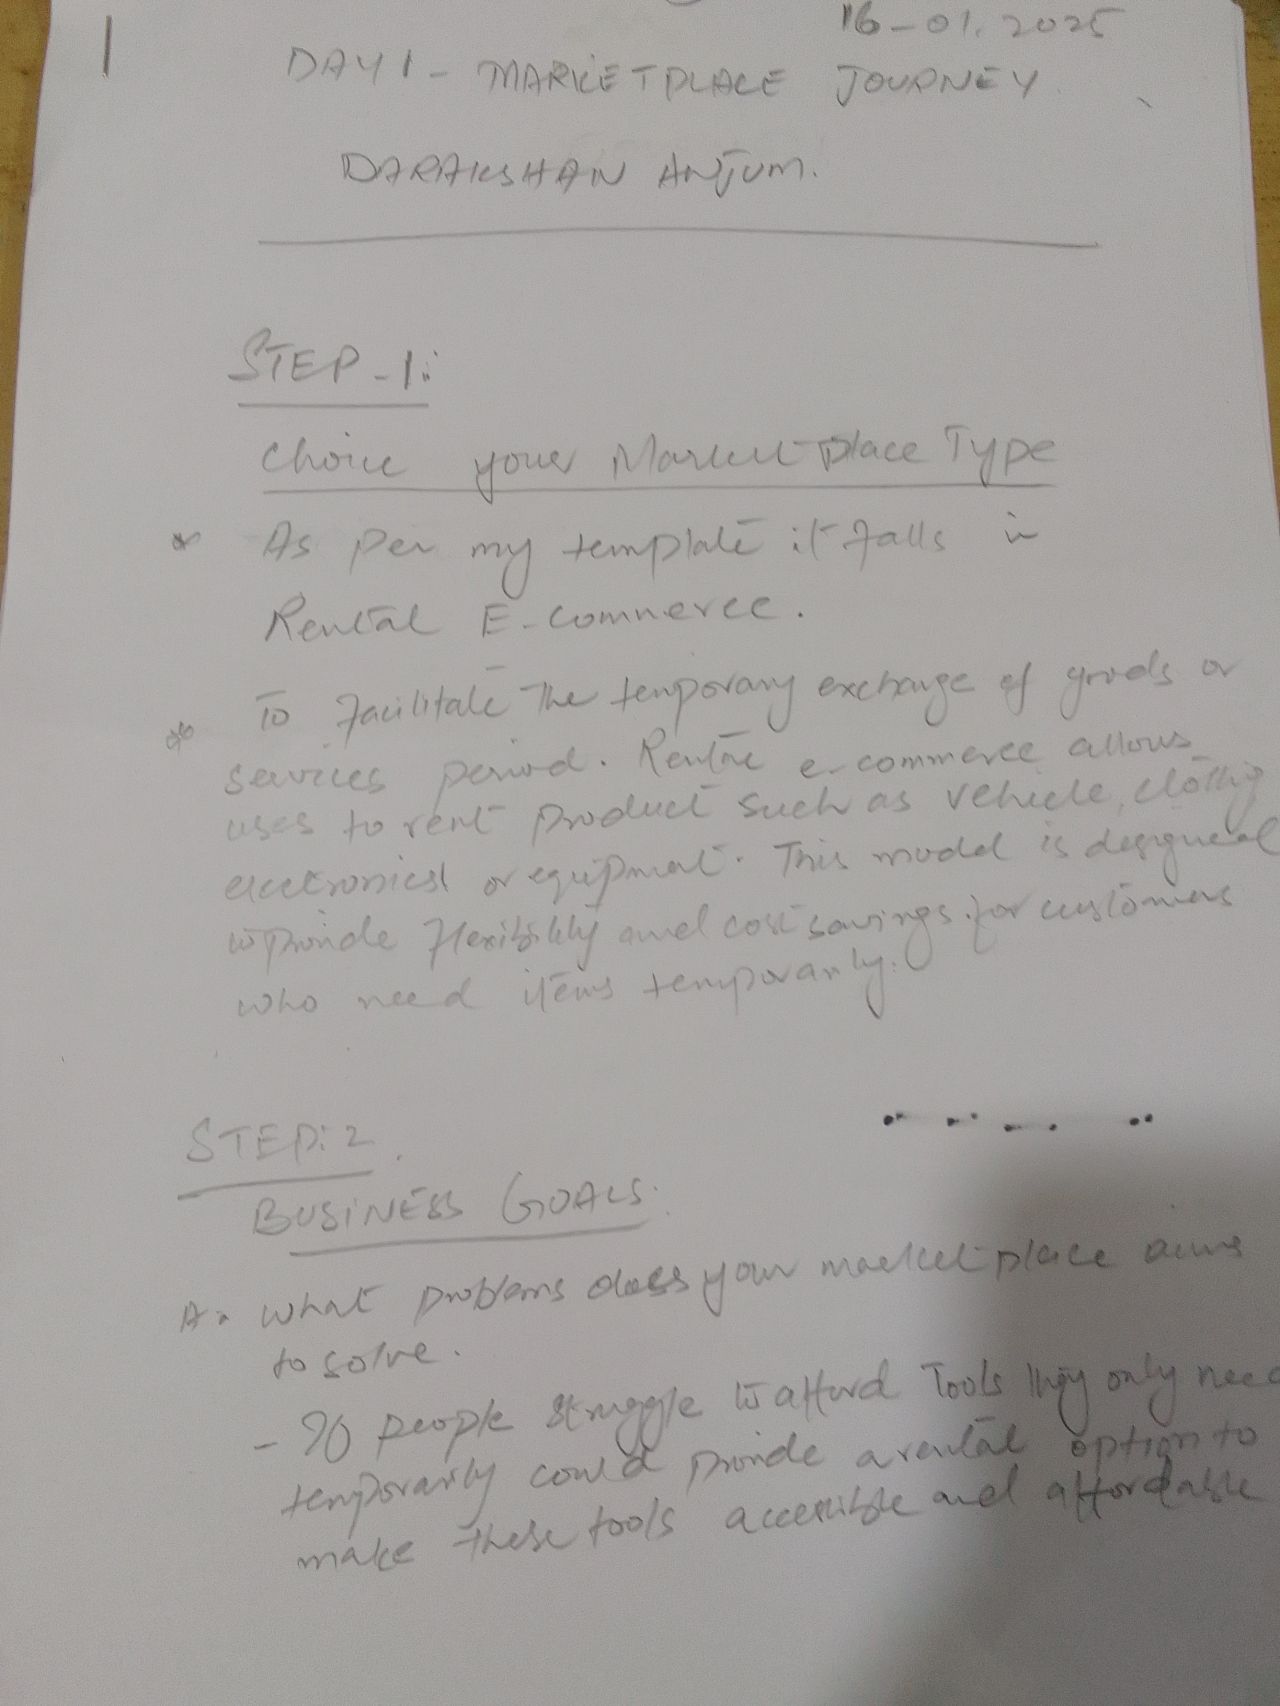 1
16-01.2025
DAY 1 - MARKETPLACE JOURNEY
DARAKSHAN ANJUM.
STEP-1:
Choice your Market Place Type
* As per my template it falls in
Rental E-commerce.
* To facilitate the temporary exchange of goods or
services period. Rental e-commerce allows
uses to rent product such as vehicle, clothig
electronics or equipment. This model is designed
to provide flexibility and cost savings for customers
who need items temporarily.
STEP: 2
BUSINESS GOALS.
A. What problems does your market place aims
to solve.
- If people struggle to afford tools they only need
temporarily could provide a rental option to
make these tools accessible and affordable